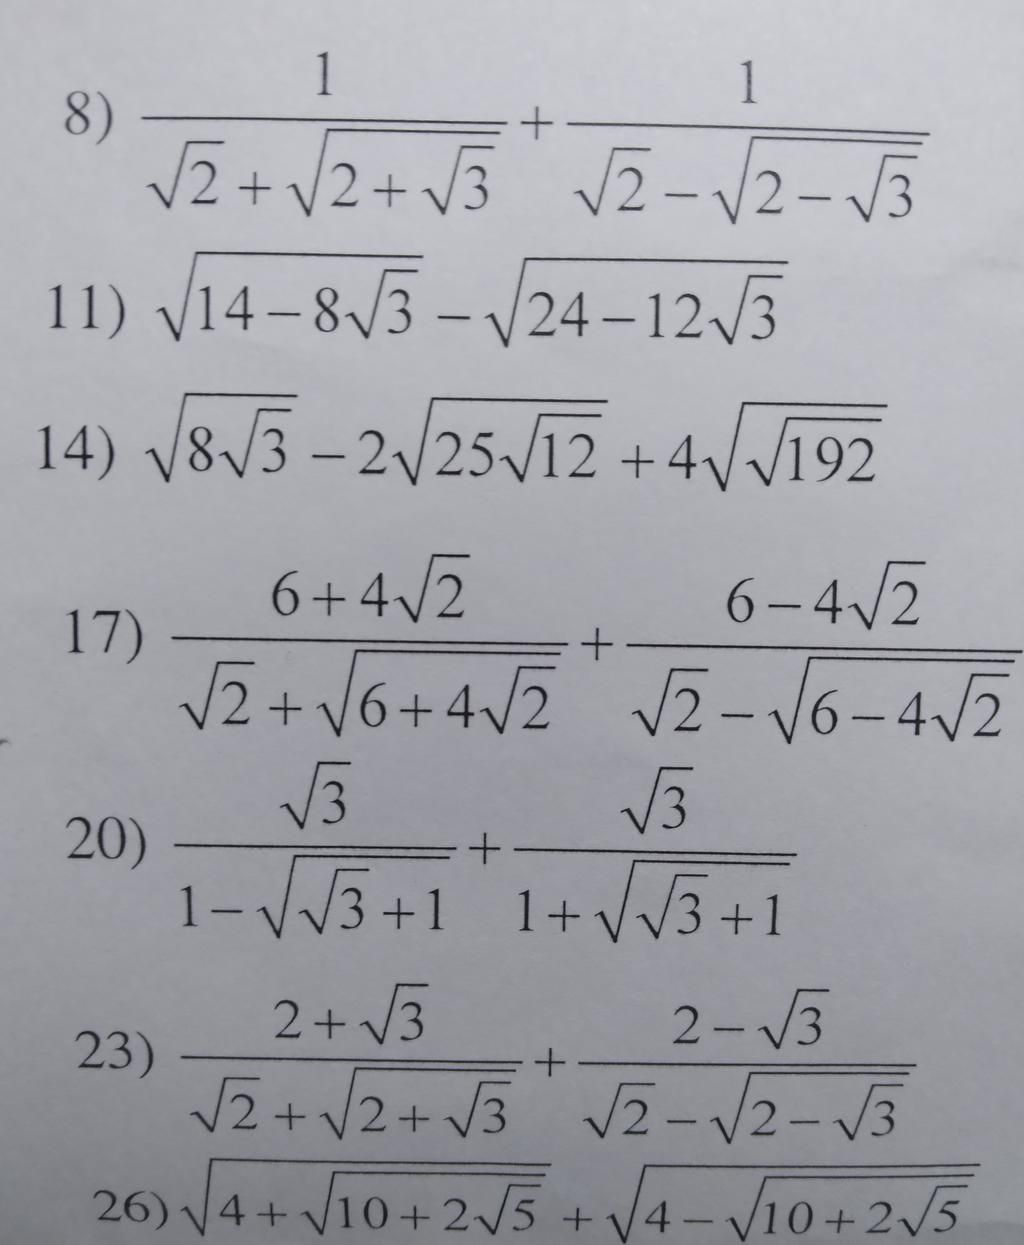 8) \frac{1}{\sqrt{2}+\sqrt{2+\sqrt{3}}}+\frac{1}{\sqrt{2}-\sqrt{2-\sqrt{3}}}
11) \sqrt{14-8\sqrt{3}}-\sqrt{24-12\sqrt{3}}
14) \sqrt{8\sqrt{3}}-2\sqrt{25\sqrt{12}}+4\sqrt{\sqrt{192}}
17) \frac{6+4\sqrt{2}}{\sqrt{2}+\sqrt{6+4\sqrt{2}}}+\frac{6-4\sqrt{2}}{\sqrt{2}-\sqrt{6-4\sqrt{2}}}
20) \frac{\sqrt{3}}{1-\sqrt{\sqrt{3}+1}}+\frac{\sqrt{3}}{1+\sqrt{\sqrt{3}+1}}
23) \frac{2+\sqrt{3}}{\sqrt{2}+\sqrt{2+\sqrt{3}}}+\frac{2-\sqrt{3}}{\sqrt{2}-\sqrt{2-\sqrt{3}}}
26) \sqrt{4+\sqrt{10+2\sqrt{5}}}+\sqrt{4-\sqrt{10+2\sqrt{5}}}